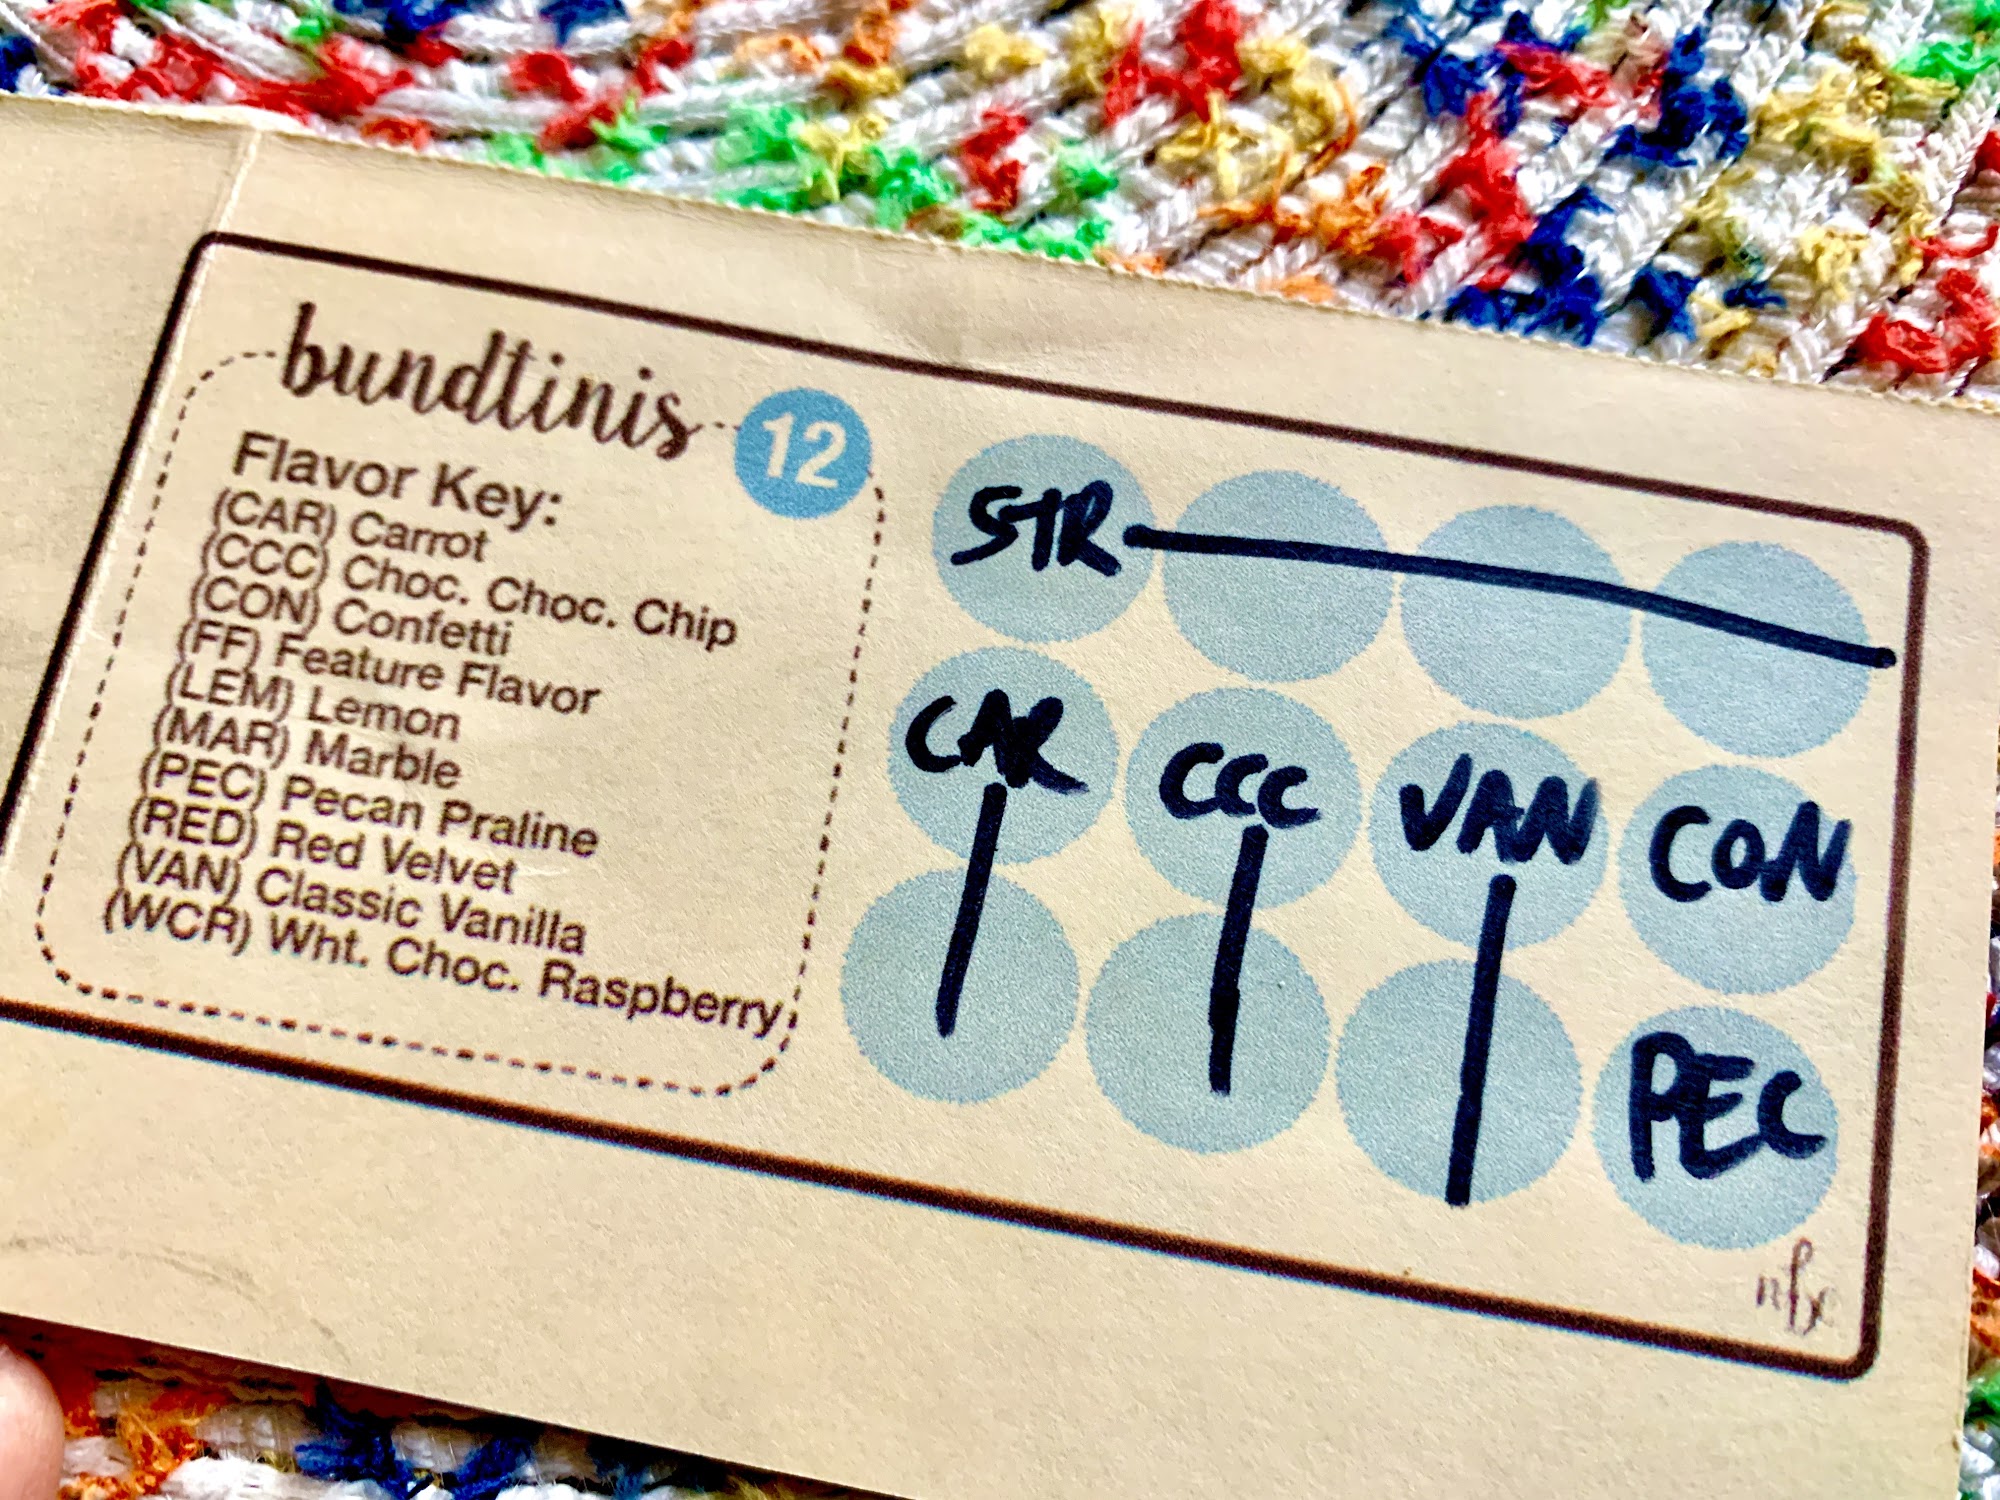 bundtinis 12
Flavor Key:
(CAR) Carrot
(CCC) Choc. Choc. Chip
(CON) Confetti
(FF) Feature Flavor
(LEM) Lemon
(MAR) Marble
(PEC) Pecan Praline
(RED) Red Velvet
(VAN) Classic Vanilla
(WCR) Wht. Choc. Raspberry
STR
CAR CCC VAN CON
PEC